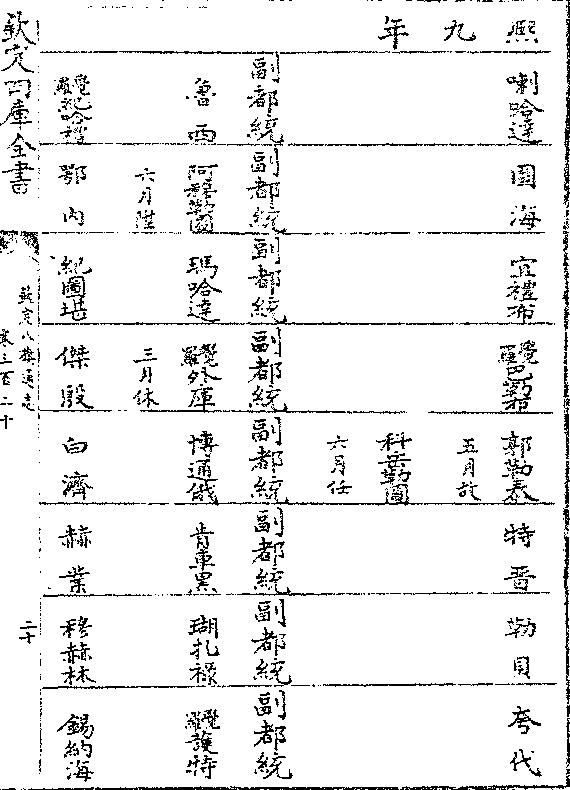 熙九年
喇哈達
圖海
宜禮布
覺羅巴爾布
郭勒泰
五月故
科岳勒圖
六月任
特晋
勒貝
夸代
副都統
副都統
副都統
副都統
副都統
副都統
副都統
副都統
魯西
阿穆勒圖
六月陞
瑪哈達
覺羅外庫
三月休
博通俄
肯車黑
瑚扎祿
覺羅護特
覺羅紀哈禮
鄂內
紀圖堪
傑殷
白濟
赫業
穆赫林
錫納海
欽定四庫全書
欽定八旗通志
卷三百二十
二十